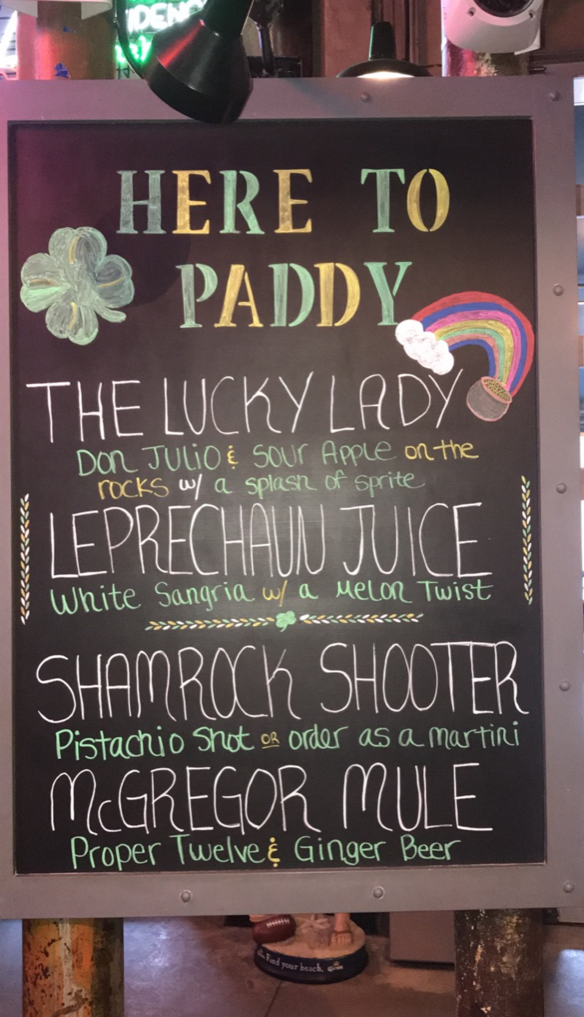 HERE TO
PADDY
THE LUCKY LADY
Don Julio & Sour Apple on the
rocks w/ a splash of Sprite
LEPRECHAUN JUICE
White Sangria w/ a Melon Twist
SHAMROCK SHOOTER
Pistachio Shot OR order as a martini
McGREGOR MULE
Proper Twelve & Ginger Beer
Find your beach.